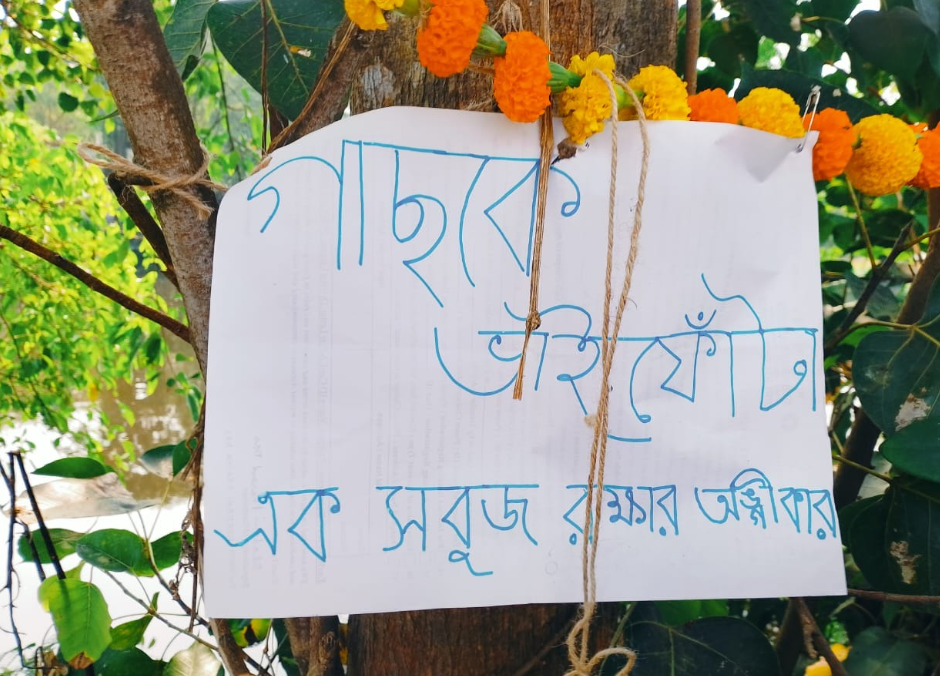 গাছকে
ভাইফোঁটা
এক সবুজ রক্ষার অঙ্গীকার